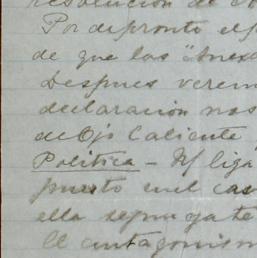 resolución de
Por de pronto el
de que los "Anex
Despues verem
declaracion nos
de Ojo Caliente
Politica - M liga
puesto en el cas
ella repugate
El antagonism